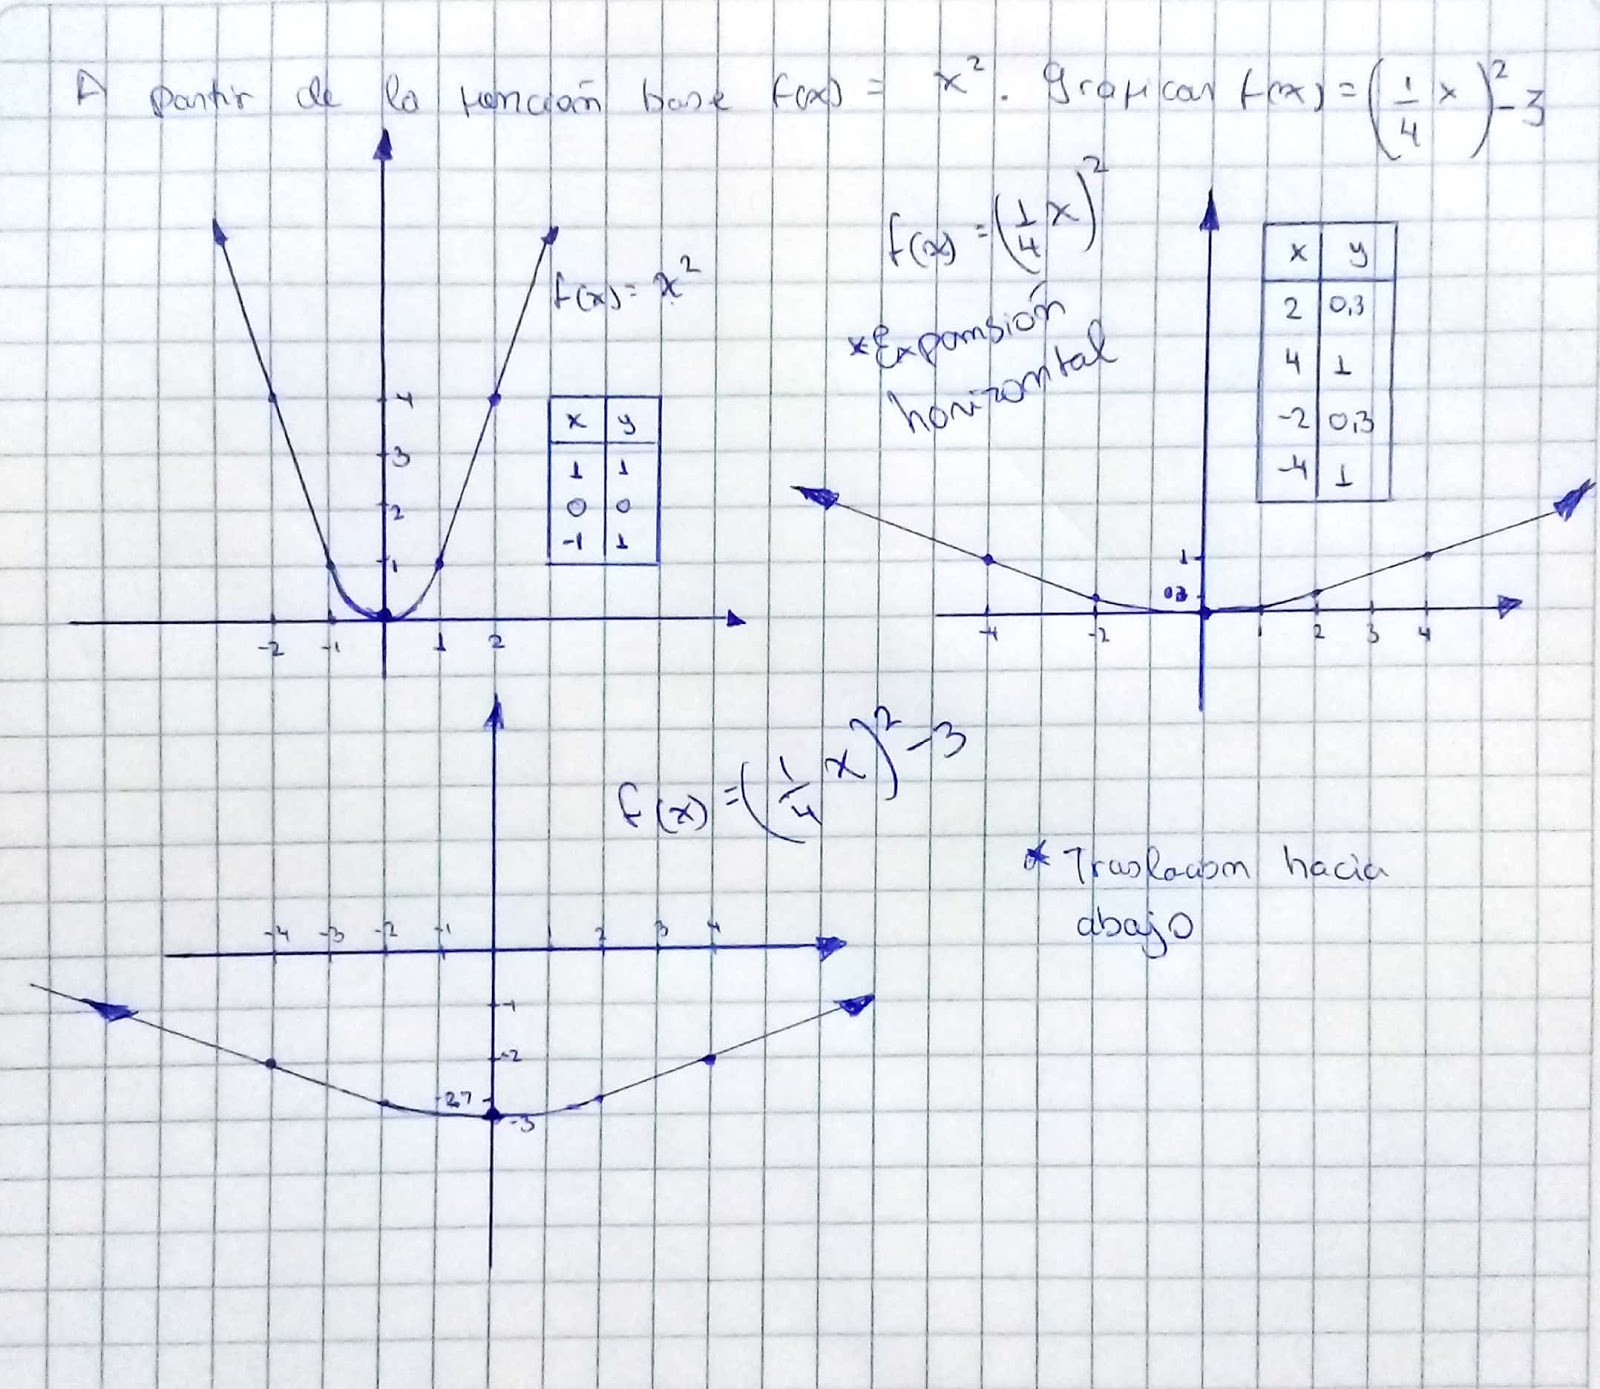 A partir de la función base f(x) = x². Graficar f(x) = (1/4 x)² - 3
f(x) = x²
4
3
2
1
-2 -1 1 2
x y
1 1
0 0
-1 1
f(x) = (1/4 x)²
* Expansión
horizontal
x y
2 0,3
4 1
-2 0,3
-4 1
1
03
-4 -2 1 2 3 4
f(x) = (1/4 x)² - 3
* Traslacion hacia
abajo
-4 -3 -2 -1 1 2 3 4
-1
-2
-2.7
-3